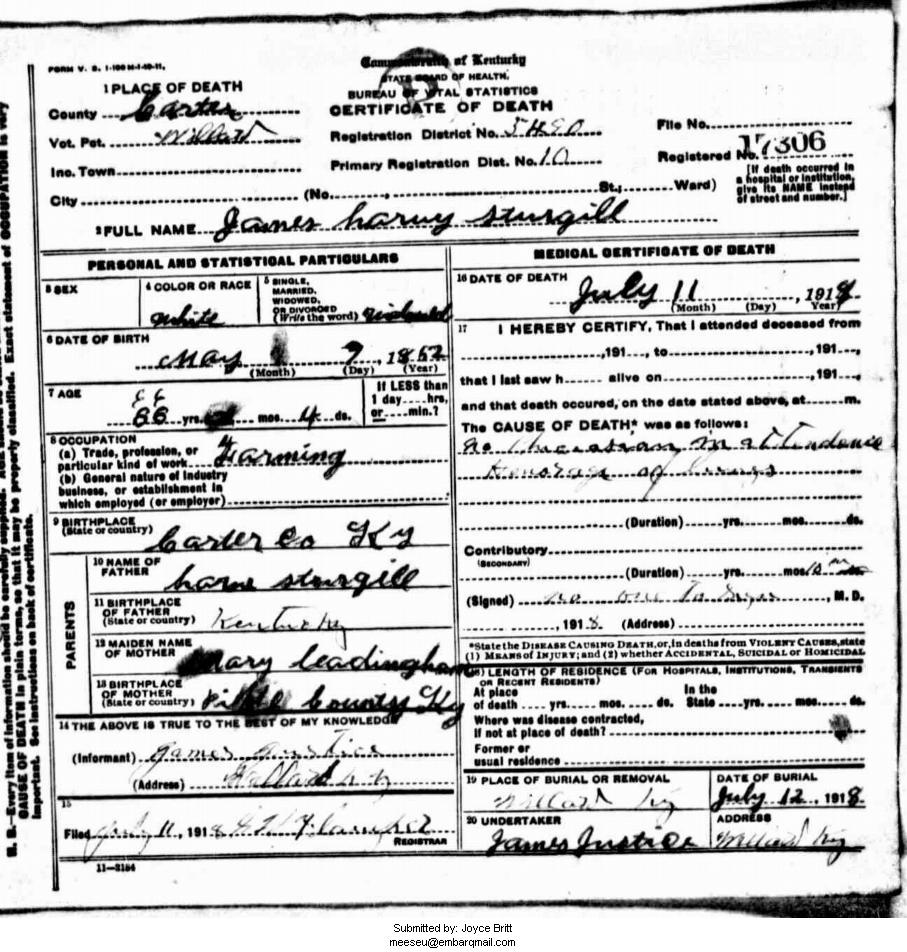 FORM V. S. 1-100 M-1-10-11.
Commonwealth of Kentucky
STATE BOARD OF HEALTH.
BUREAU OF VITAL STATISTICS
CERTIFICATE OF DEATH
1 PLACE OF DEATH
County Carter
Vot. Pct. Willard
Inc. Town
City (No. St.; Ward)
Registration District No. 5490
Primary Registration Dist. No. 10
File No.
Registered No. 17306
[If death occurred in
a hospital or institution,
give its NAME instead
of street and number.]
2 FULL NAME James harvy sturgill
PERSONAL AND STATISTICAL PARTICULARS
3 SEX
4 COLOR OR RACE
white
5 SINGLE,
MARRIED,
WIDOWED,
OR DIVORCED
(Write the word) widowed
6 DATE OF BIRTH
May 7, 1852
(Month) (Day) (Year)
7 AGE
66
66 yrs. mos. 4 ds.
If LESS than
1 day hrs.
or min.?
8 OCCUPATION
(a) Trade, profession, or
particular kind of work Farming
(b) General nature of industry
business, or establishment in
which employed (or employer)
9 BIRTHPLACE
(State or country)
Carter Co Ky
PARENTS
10 NAME OF
FATHER
sturgill
11 BIRTHPLACE
OF FATHER
(State or country) Kentucky
12 MAIDEN NAME
OF MOTHER
Mary Leadingham
13 BIRTHPLACE
OF MOTHER
(State or country) County Ky
14 THE ABOVE IS TRUE TO THE BEST OF MY KNOWLEDGE
(Informant) James Justice
(Address) Willard Ky
15
Filed July 11, 1918
REGISTRAR
11-3184
MEDICAL CERTIFICATE OF DEATH
16 DATE OF DEATH
July 11, 1918
(Month) (Day) Year
17 I HEREBY CERTIFY, That I attended deceased from
,191 , to ,191 ,
that I last saw h alive on ,191
and that death occured, on the date stated above, at m.
The CAUSE OF DEATH* was as follows:
no in attendance
of
(Duration) yrs. mos. ds.
Contributory
(SECONDARY)
(Duration) yrs. mos. 10
(Signed) no one to sign, M. D.
, 1918 (Address)
*State the DISEASE CAUSING DEATH, or, in deaths from VIOLENT CAUSES, state
(1) MEANS OF INJURY; and (2) whether ACCIDENTAL, SUICIDAL or HOMICIDAL
LENGTH OF RESIDENCE (FOR HOSPITALS, INSTITUTIONS, TRANSIENTS
OR RECENT RESIDENTS)
At place
of death yrs. mos. ds.
In the
State yrs. mos. ds.
Where was disease contracted,
If not at place of death?
Former or
usual residence
19 PLACE OF BURIAL OR REMOVAL
Willard Ky
DATE OF BURIAL
July 12, 1918
20 UNDERTAKER
James Justice
ADDRESS
Willard Ky
N. B.—Every item of information should be carefully supplied.
CAUSE OF DEATH in plain terms, so that it may be properly classified. Exact statement of OCCUPATION is very
important. See instructions on back of certificate.
Submitted by: Joyce Britt
meeseu@embarqmail.com